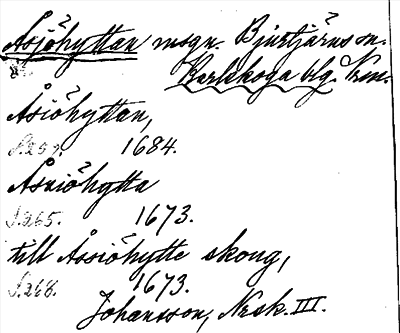 Åsjöhyttan msgn. Bjurtjärns sn.
Karlskoga blg. Vrm.
Åsiöhyttan,
S.257. 1684.
Åsiöhytta
S.265. 1673.
till Åssiöhytte skoug,
S.268. 1673.
Johansson, Nesk. III.